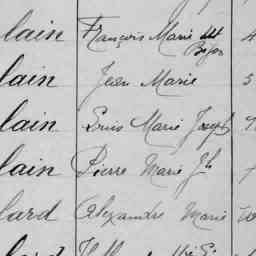 lain François Marie
lain Jean Marie 5
lain Louis Marie Joseph
lain Pierre Marie Jh
lard Alexandre Marie
lard